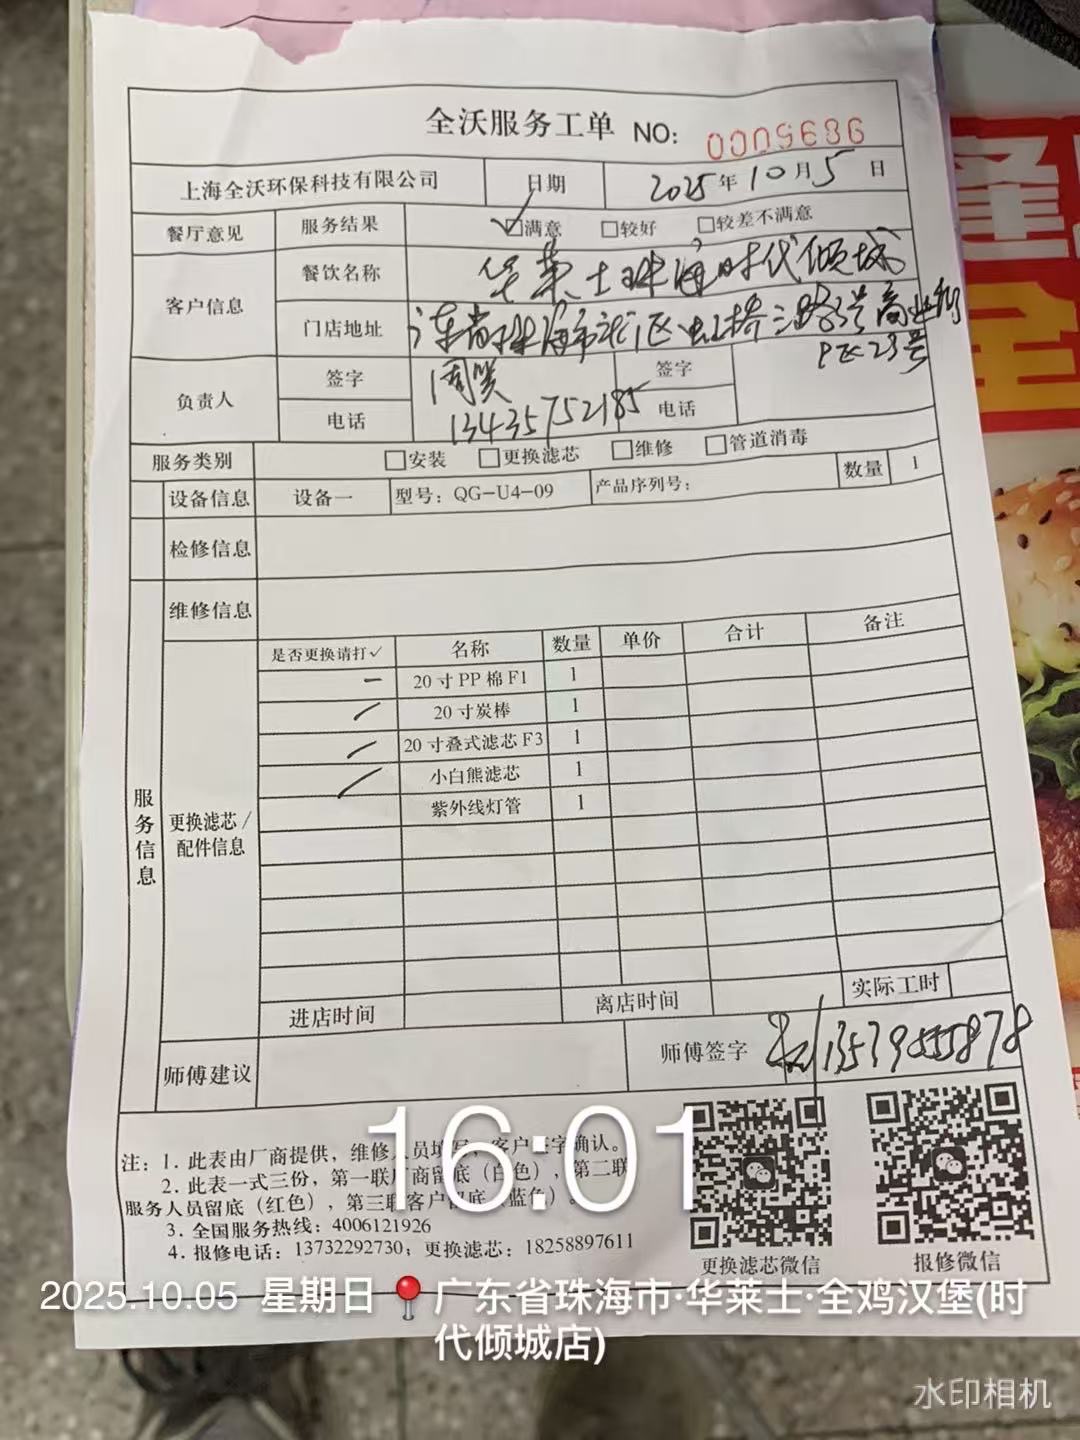 全沃服务工单 NO: 0005686
上海全沃环保科技有限公司 日期 2025年10月5日
餐厅意见 服务结果 ✓□满意 □较好 □较差不满意
客户信息 餐饮名称 华莱士珠海时代倾城
门店地址 广东省珠海市 区 桥 路 号商业街
P区23号
负责人 签字 周笑 签字
电话 13435752185 电话
服务类别 □安装 □更换滤芯 □维修 □管道消毒
设备信息 设备一 型号：QG-U4-09 产品序列号： 数量 1
检修信息
维修信息
是否更换请打✓ 名称 数量 单价 合计 备注
20寸PP棉F1 1
20寸炭棒 1
20寸叠式滤芯F3 1
小白熊滤芯 1
紫外线灯管 1
服务信息
更换滤芯/
配件信息
进店时间 离店时间 实际工时
师傅建议 师傅签字 13539555878
注：1. 此表由厂商提供，维修人员填写，客户签字确认。
2. 此表一式三份，第一联厂商留底（白色），第二联
服务人员留底（红色），第三联客户留底（蓝色）。
3. 全国服务热线：4006121926
4. 报修电话：13732292730；更换滤芯：18258897611
更换滤芯微信 报修微信
16:01
2025.10.05 星期日 广东省珠海市·华莱士·全鸡汉堡(时
代倾城店)
水印相机